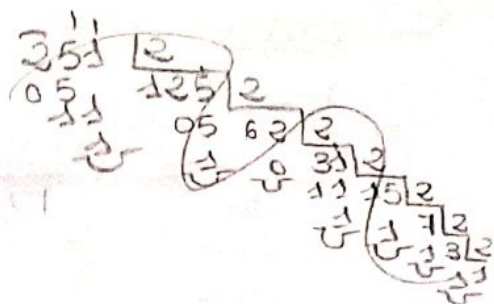 11
251 2
05 125 2
11 05 62 2
1 1 0 31 2
11 15 2
1 1 7 2
1 3 2
1 1